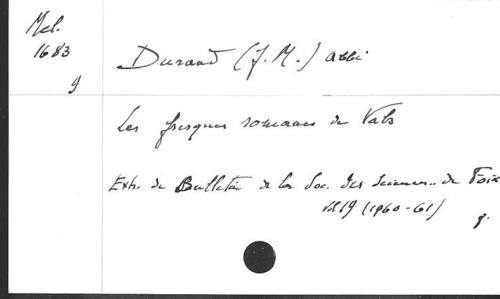 Mel.
1683
9
Durand (J. M.) abbé
Les fresques romanes de Vals
Extr. de Bulletin de la Soc. des Sciences.. de Foix
n°19 (1960-61)